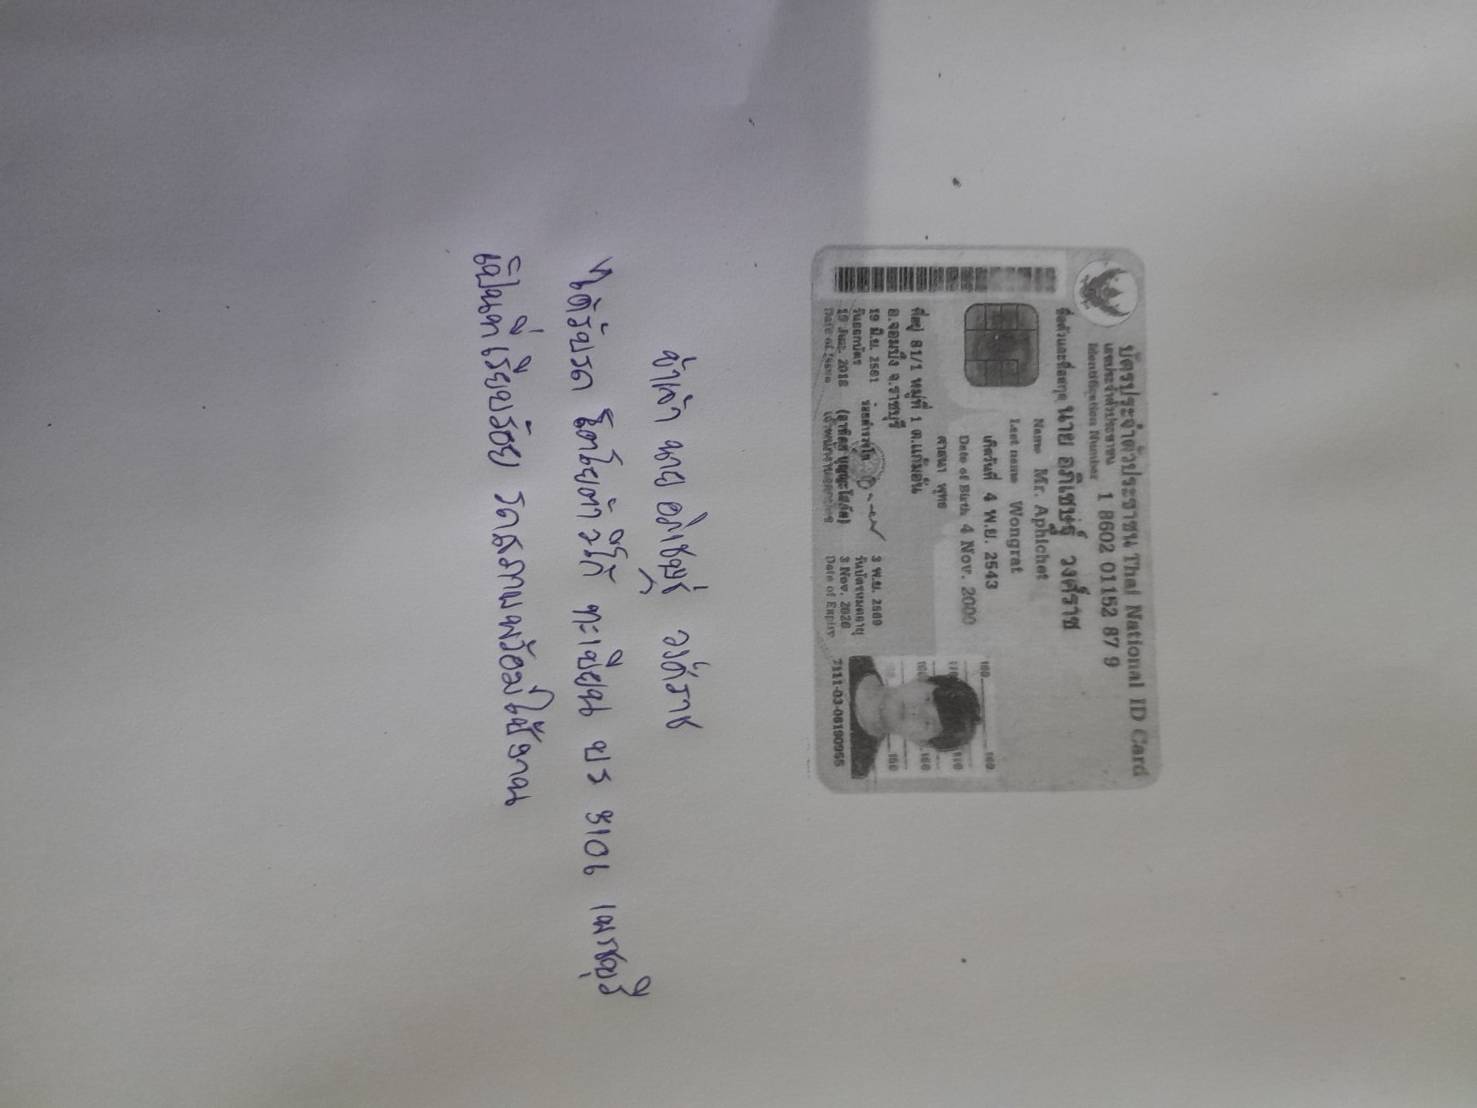 บัตรประจำตัวประชาชน Thai National ID Card
เลขประจำตัวประชาชน 1 8602 01152 87 9
Identification Number
ชื่อตัวและชื่อสกุล นาย อภิเชษฐ์ วงศ์ราช
Name Mr. Aphichet
Last name Wongrat
เกิดวันที่ 4 พ.ย. 2543
Date of Birth 4 Nov. 2000
ศาสนา พุทธ
ที่อยู่ 81/1 หมู่ที่ 1 ต.แก้มอ้น
อ.จอมบึง จ.ราชบุรี
19 มิ.ย. 2561
วันออกบัตร
19 Jun. 2018
Date of Issue
เจ้าพนักงานออกบัตร
3 พ.ย. 2569
วันบัตรหมดอายุ
3 Nov. 2026
Date of Expiry
160 160
150 150
7111-03-06190955
ข้าพเจ้า นาย อภิเชษฐ์ วงศ์ราช
ได้รับรถ โตโยต้า วีโก้ ทะเบียน บร เพชรบุรี
เป็นที่เรียบร้อย รถสภาพพร้อมใช้งาน